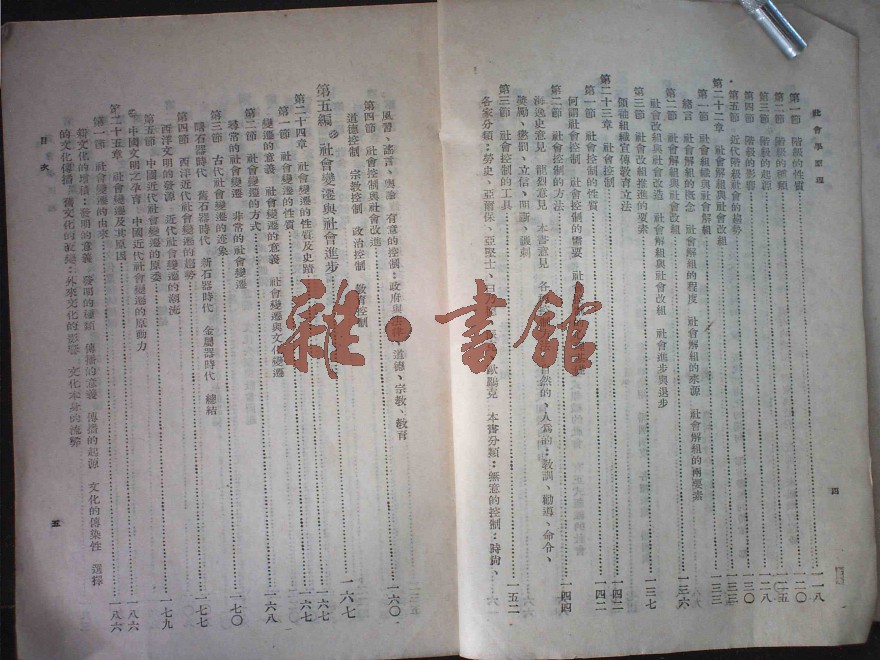 社會學原理
四
第一節 階級的性質 一一八
第二節 階級的種類 一二〇
第三節 階級的起源 一二五
第四節 階級的影響 一二八
第五節 近代階級社會的趨勢 一三〇
第二十二章 社會解組與社會改組 一三三
第一節 社會組織與社會解組 一三三
緒言 社會解組的概念 社會解組的程度 社會解組的來源 社會解組的兩要素
第二節 社會解組與社會改組 一三六
社會改組與社會改造 社會解組與社會改組 社會進步與退步
第三節 社會改組推進的要素 一三七
領袖組織宣傳教育立法
第二十三章 社會控制 一四二
第一節 社會控制的性質 一四二
何謂社會控制 社會控制的需要
第二節 社會控制的方法 一四四
海逸史意見 龍烈意見 本書意見 自然的、人為的:教訓、勸導、命令、
獎勵、懲罰、立信、明議、諷刺
第三節 社會控制的工具 一五二
各家分類:勞史、亞爾保、亞堅士、白 歐鵬克 本書分類:無意的控制:時尚、
風習、謠言、輿論 有意的控制:政府與法律、道德、宗教、教育
第四節 社會控制與社會改進 一六〇
道德控制 宗教控制 政治控制 教育控制
第五編 社會變遷與社會進步 一六七
第二十四章 社會變遷的性質及史蹟 一六七
第一節 社會變遷的性質 一六七
變遷的意義 社會變遷的意義 社會變遷與文化變遷
第二節 社會變遷的方式 一六八
尋常的社會變遷 非常的社會變遷
第三節 古代社會變遷的迹象 一七〇
曙石器時代 舊石器時代 新石器時代 金屬器時代 總結
第四節 西洋近代社會變遷的趨勢 一七七
西洋文明的發源 近代社會變遷的潮流
第五節 中國近代社會變遷的原委 一七九
中國文明之孕育 中國近代社會變遷的原動力
第二十五章 社會變遷及其原因 一八六
第一節 社會變遷的由來 一八六
新文化的增積:發明的意義 發明的種類 傳播的意義 傳播的起源 文化的傳染性 選擇
的文化傳播 舊文化的改變:外來文化的影響 文化本身的流弊
目次
五
雜·書館